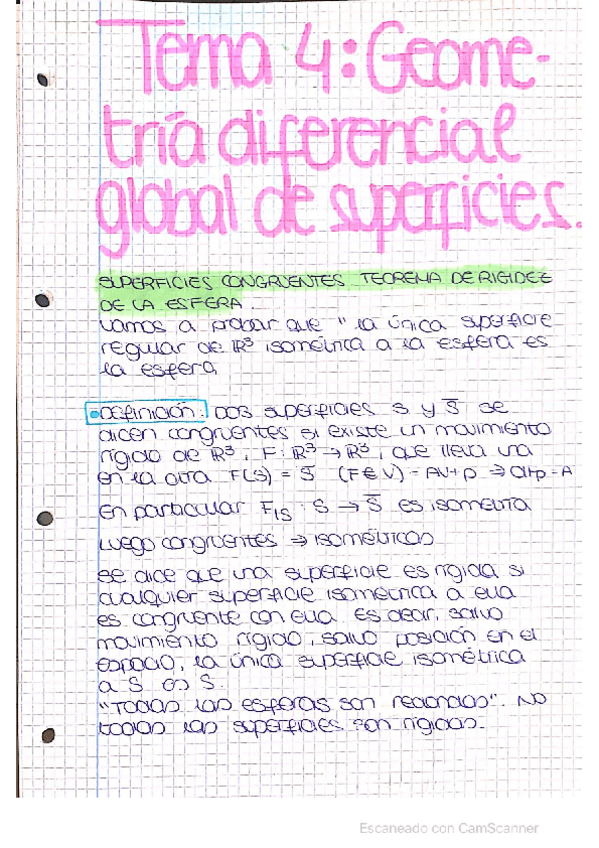 Tema 4: Geome-
tría diferencial
global de superficies.
SUPERFICIES CONGRUENTES TEOREMA DE RIGIDEZ
DE LA ESFERA
Vamos a probar que "la única superficie
regular de ℝ³ isométrica a la esfera es
la esfera
Definición: Dos superficies S y S̄ se
dicen congruentes si existe un movimiento
rígido de ℝ³, F: ℝ³ → ℝ³, que lleva una
en la otra F(S) = S̄
En particular F|S : S → S̄ es isometría
Luego congruentes ⇒ isométricas
Se dice que una superficie es rígida si
cualquier superficie isométrica a ella
es congruente con ella. Es decir, salvo
movimiento rígido, salvo posición en el
espacio, la única superficie isométrica
a S es S.
"Todas las esferas son redondas". No
todas las superficies son rígidas.
Escaneado con CamScanner